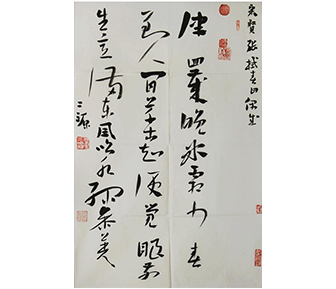 宋賢張栻立春偶成
律回歲晚冰霜少春
到人间草木知便覺眼前
生意满东风吹水绿参差
三源